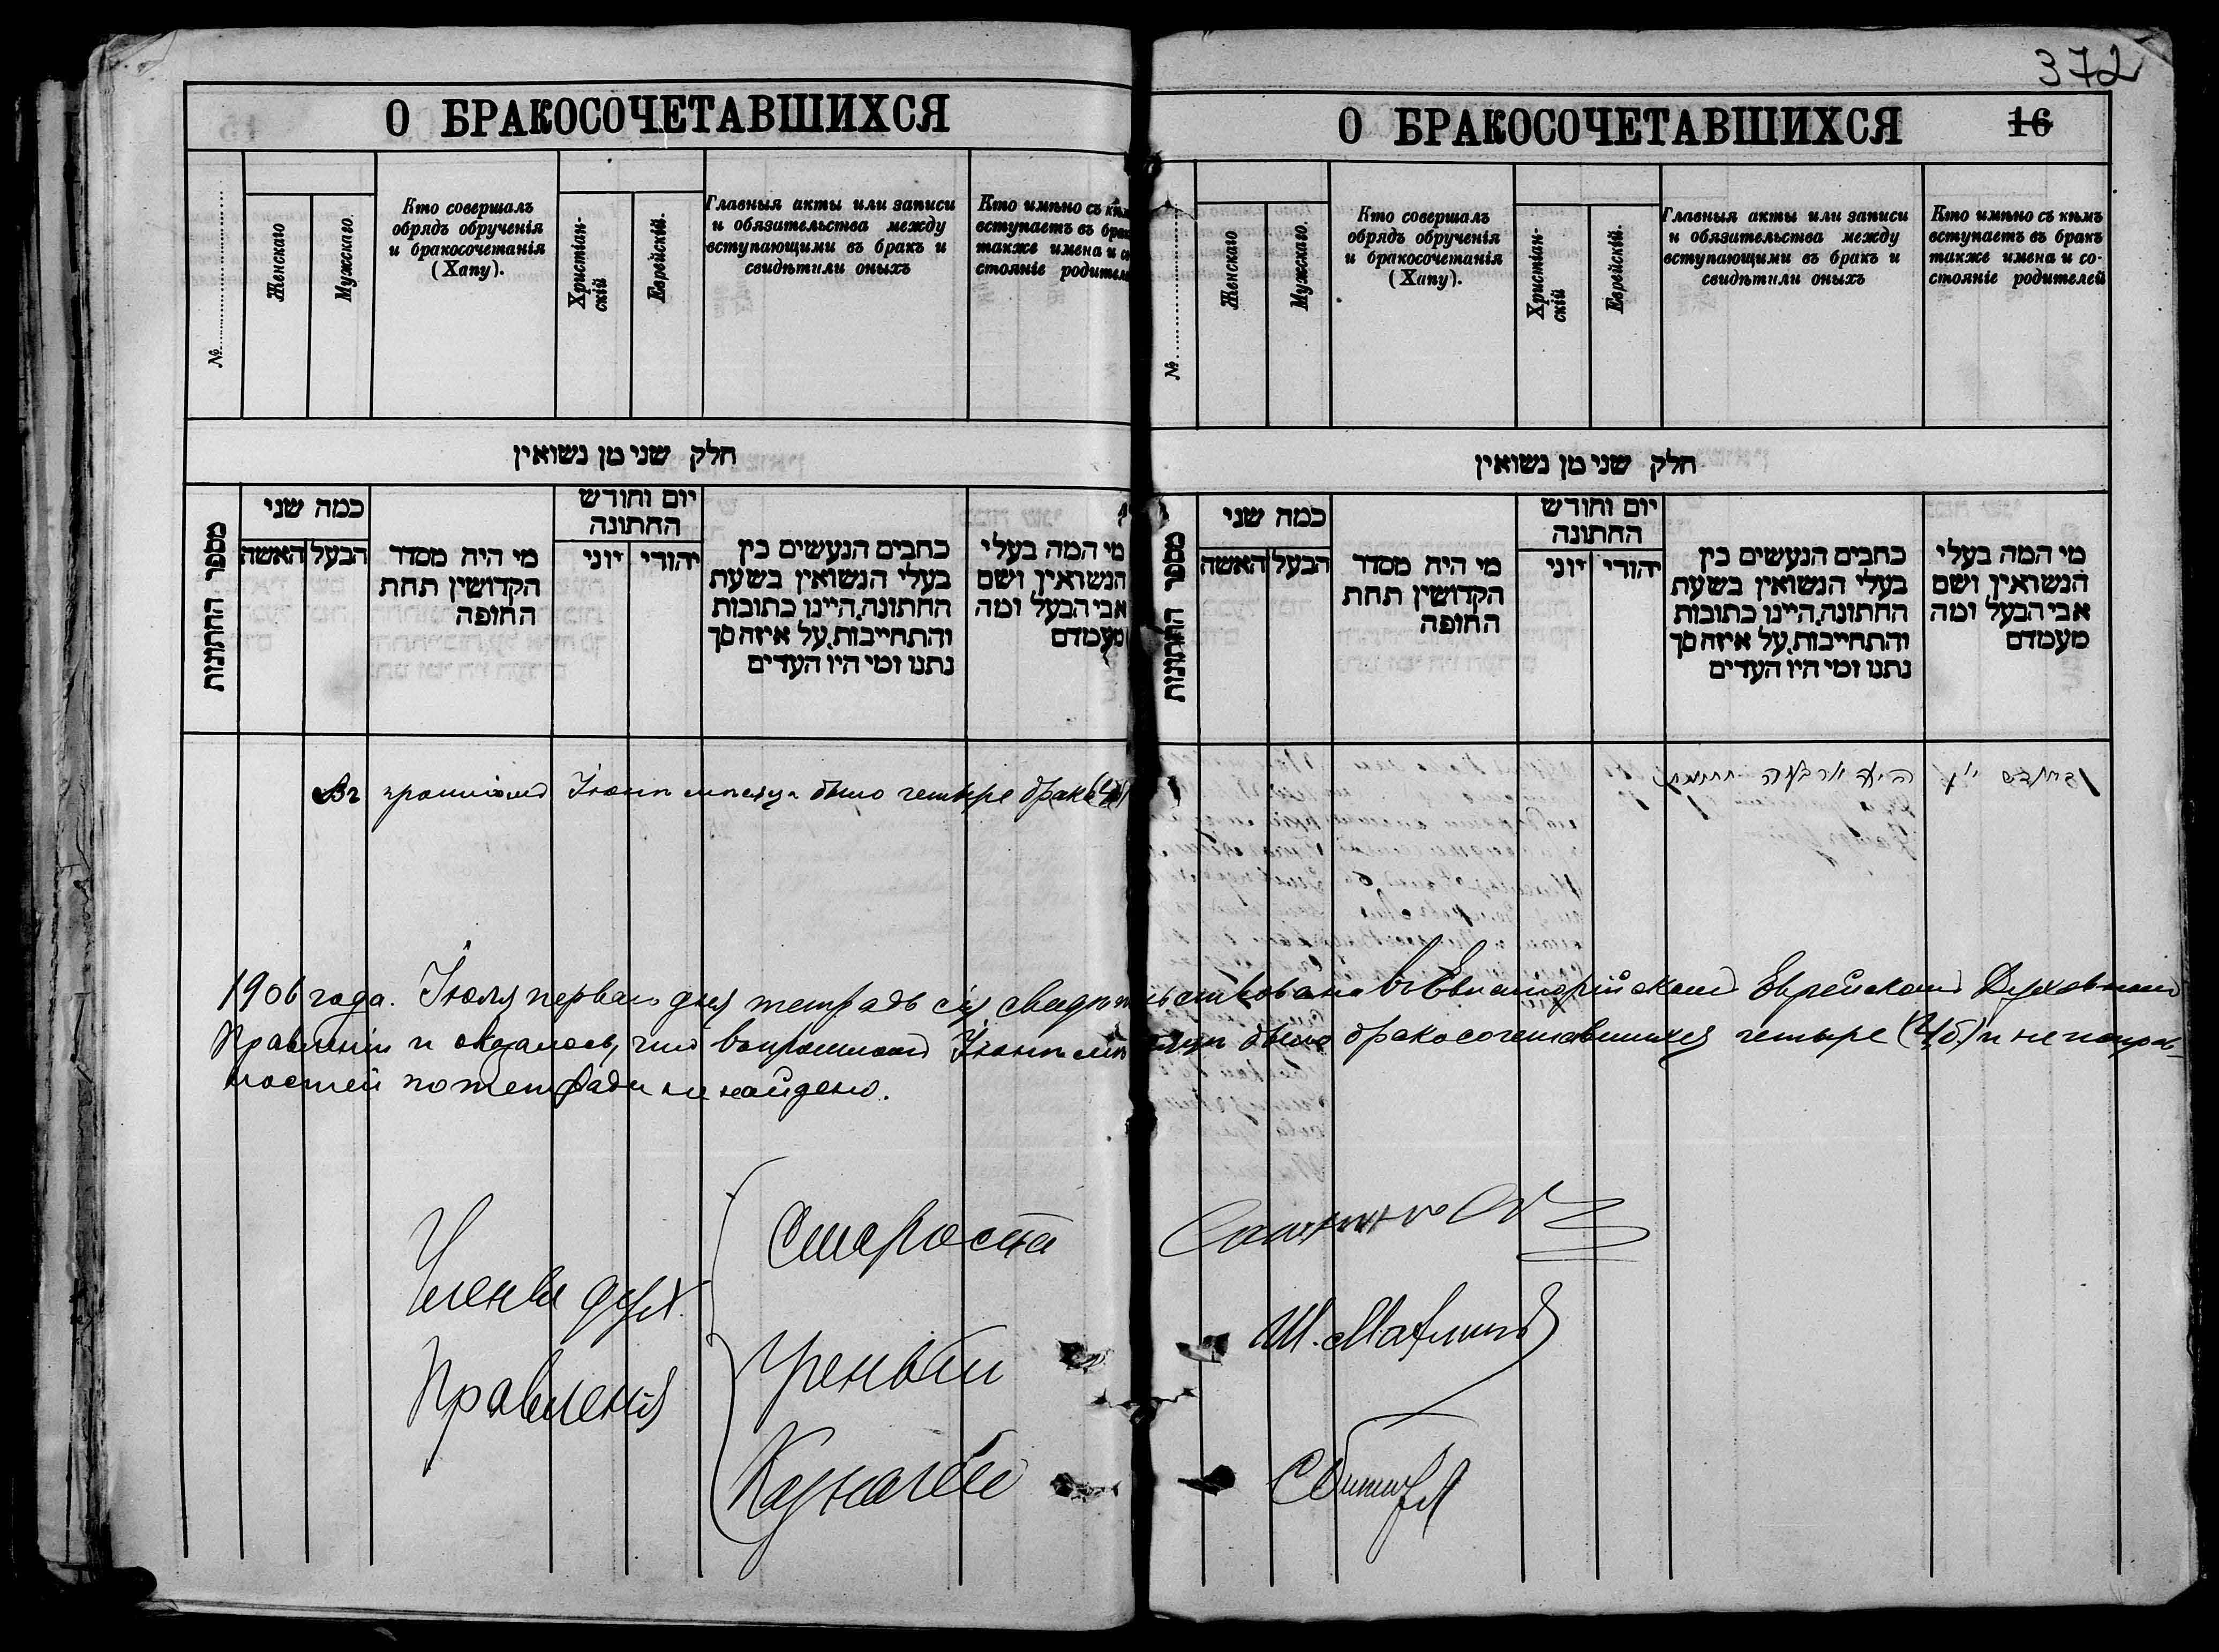 О БРАКОСОЧЕТАВШИХСЯ
№
Женскаго
Мужскаго.
Кто совершалъ
обрядъ обрученія
и бракосочетанія
(Хапу).
Христіан-
скій
Еврейскій.
Главныя акты или записи
и обязательства между
вступающими въ бракъ и
свидѣтили оныхъ
Кто имѣно съ кѣм
вступаетъ въ брак
также имена и со
стояніе родител
חלק שני מן נשואין
מספר החתונות
כמה שני
הבעל
האשה
מי היה מסדר
הקדושין תחת
החופה
יום וחודש
החתונה
יהודי
יוני
כתבים הנעשים בין
בעלי הנשואין בשעת
החתונה.היינו כתובות
והתחייבות.על איזה סך
נתנו ומי היו העדים
מי המה בעלי
הנשואין ושם
אבי הבעל ומה
מעמדם
Въ прошломъ Іюнѣ мѣсяцѣ было четыре брака (4б)
372
О БРАКОСОЧЕТАВШИХСЯ 16
№
Женскаго
Мужскаго.
Кто совершалъ
обрядъ обрученія
и бракосочетанія
(Хапу).
Христіан-
скій
Еврейскій.
Главныя акты или записи
и обязательства между
вступающими въ бракъ и
свидѣтили оныхъ
Кто имѣно съ кѣмъ
вступаетъ въ бракъ
также имена и со-
стояніе родителей
חלק שני מן נשואין
מספר החתונות
כמה שני
הבעל
האשה
מי היה מסדר
הקדושין תחת
החופה
יום וחודש
החתונה
יהודי
יוני
כתבים הנעשים בין
בעלי הנשואין בשעת
החתונה.היינו כתובות
והתחייבות.על איזה סך
נתנו ומי היו העדים
מי המה בעלי
הנשואין ושם
אבי הבעל ומה
מעמדם
בחודש יוני היה ארבעה חתונות
1906 года. Іюля перваго дня тетрадь сія свидѣтельствована въ Евпаторійскомъ Еврейскомъ Духовномъ
Правленіи и оказалось, что въ прошломъ Іюнѣ мѣсяцѣ было бракосочетавшихся четыре (4б.) и неисправ-
ностей по тетради не найдено.
Члены дух.
Правленія
Староста
Ученый
Казначей
Ш.